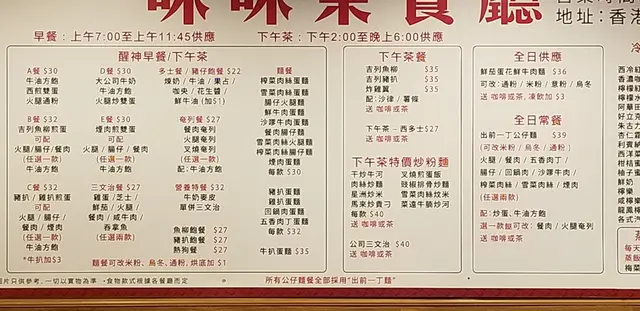 咪咪茶餐廳
地址：香港
早餐：上午7:00至上午11:45供應
下午茶：下午2:00至晚上6:00供應
醒神早餐/下午茶
A餐 $30
牛油方飽
西煎雙蛋
火腿通粉
B餐 $32
吉列魚柳煎蛋
可配
火腿/腸仔/餐肉
(任選一款)
牛油方飽
C餐 $32
豬扒/雞扒煎蛋
可配
火腿/腸仔/
餐肉/煙肉
(任選一款)
牛油方飽
*牛扒加$3
D餐 $30
大公司牛奶
牛油方飽
火腿炒雙蛋
E餐 $30
煙肉煎雙蛋
可配
火腿/腸仔/餐肉
(任選一款)
牛油方飽
三文治餐 $27
雞蛋/芝士/
鮮茄/火腿/
餐肉/咸牛肉/
吞拿魚
(任選兩款)
多士餐/豬仔飽餐 $22
煉奶/牛油/果占/
咖央/花生醬/
鮮牛油(加$1)
奄列餐 $27
餐肉奄列
火腿奄列
叉燒奄列
配:牛油方飽
營養特餐 $32
牛奶麥皮
單併三文治
魚柳飽餐 $27
豬扒飽餐 $27
熱狗餐 $27
麵餐可改米粉、烏冬、通粉,烘底加 $1
麵餐
榨菜肉絲麵
雪菜肉絲蛋麵
腸仔火腿麵
鮮牛肉蛋麵
沙嗲牛肉蛋麵
餐肉腸仔麵
雪菜肉絲火腿麵
榨菜肉絲腸仔麵
煙肉蛋麵
每款 $30
豬扒蛋麵
雞扒蛋麵
回鍋肉蛋麵
五香肉丁蛋麵
每款 $32
牛扒蛋麵 $35
下午茶餐
吉列魚柳 $35
吉列豬扒 $35
炸雞翼 $35
配:沙律/薯條
送 咖啡或茶
下午茶 - 西多士$27
送 咖啡或茶
下午茶特價炒粉麵
干炒牛河
肉絲炒麵
星洲炒米
馬來炒貴刁
每款 $40
送 咖啡或茶
叉燒煎蛋飯
豉椒排骨炒麵
雪菜肉絲炆米
菜遠牛脷炒河
公司三文治 $40
送 咖啡或茶
全日供應
鮮茄蛋花鮮牛肉麵 $36
可改:通粉/米粉/意粉/烏冬
送 咖啡或茶,凍飲加 $3
全日常餐
出前一丁公仔麵 $39
(可改米粉/烏冬/通粉)
火腿/餐肉/五香肉丁/
腸仔/回鍋肉/沙嗲牛肉/
榨菜肉絲/雪菜肉絲/煙肉
(任選一款)
配:炒蛋、牛油方飽
選一款飽可改:餐肉/火腿奄列
送 咖啡或茶
片只供參考,一切以實物為準 *食物款式根據各餐廳而定
所有公仔麵餐全部採用"出前一丁麵"